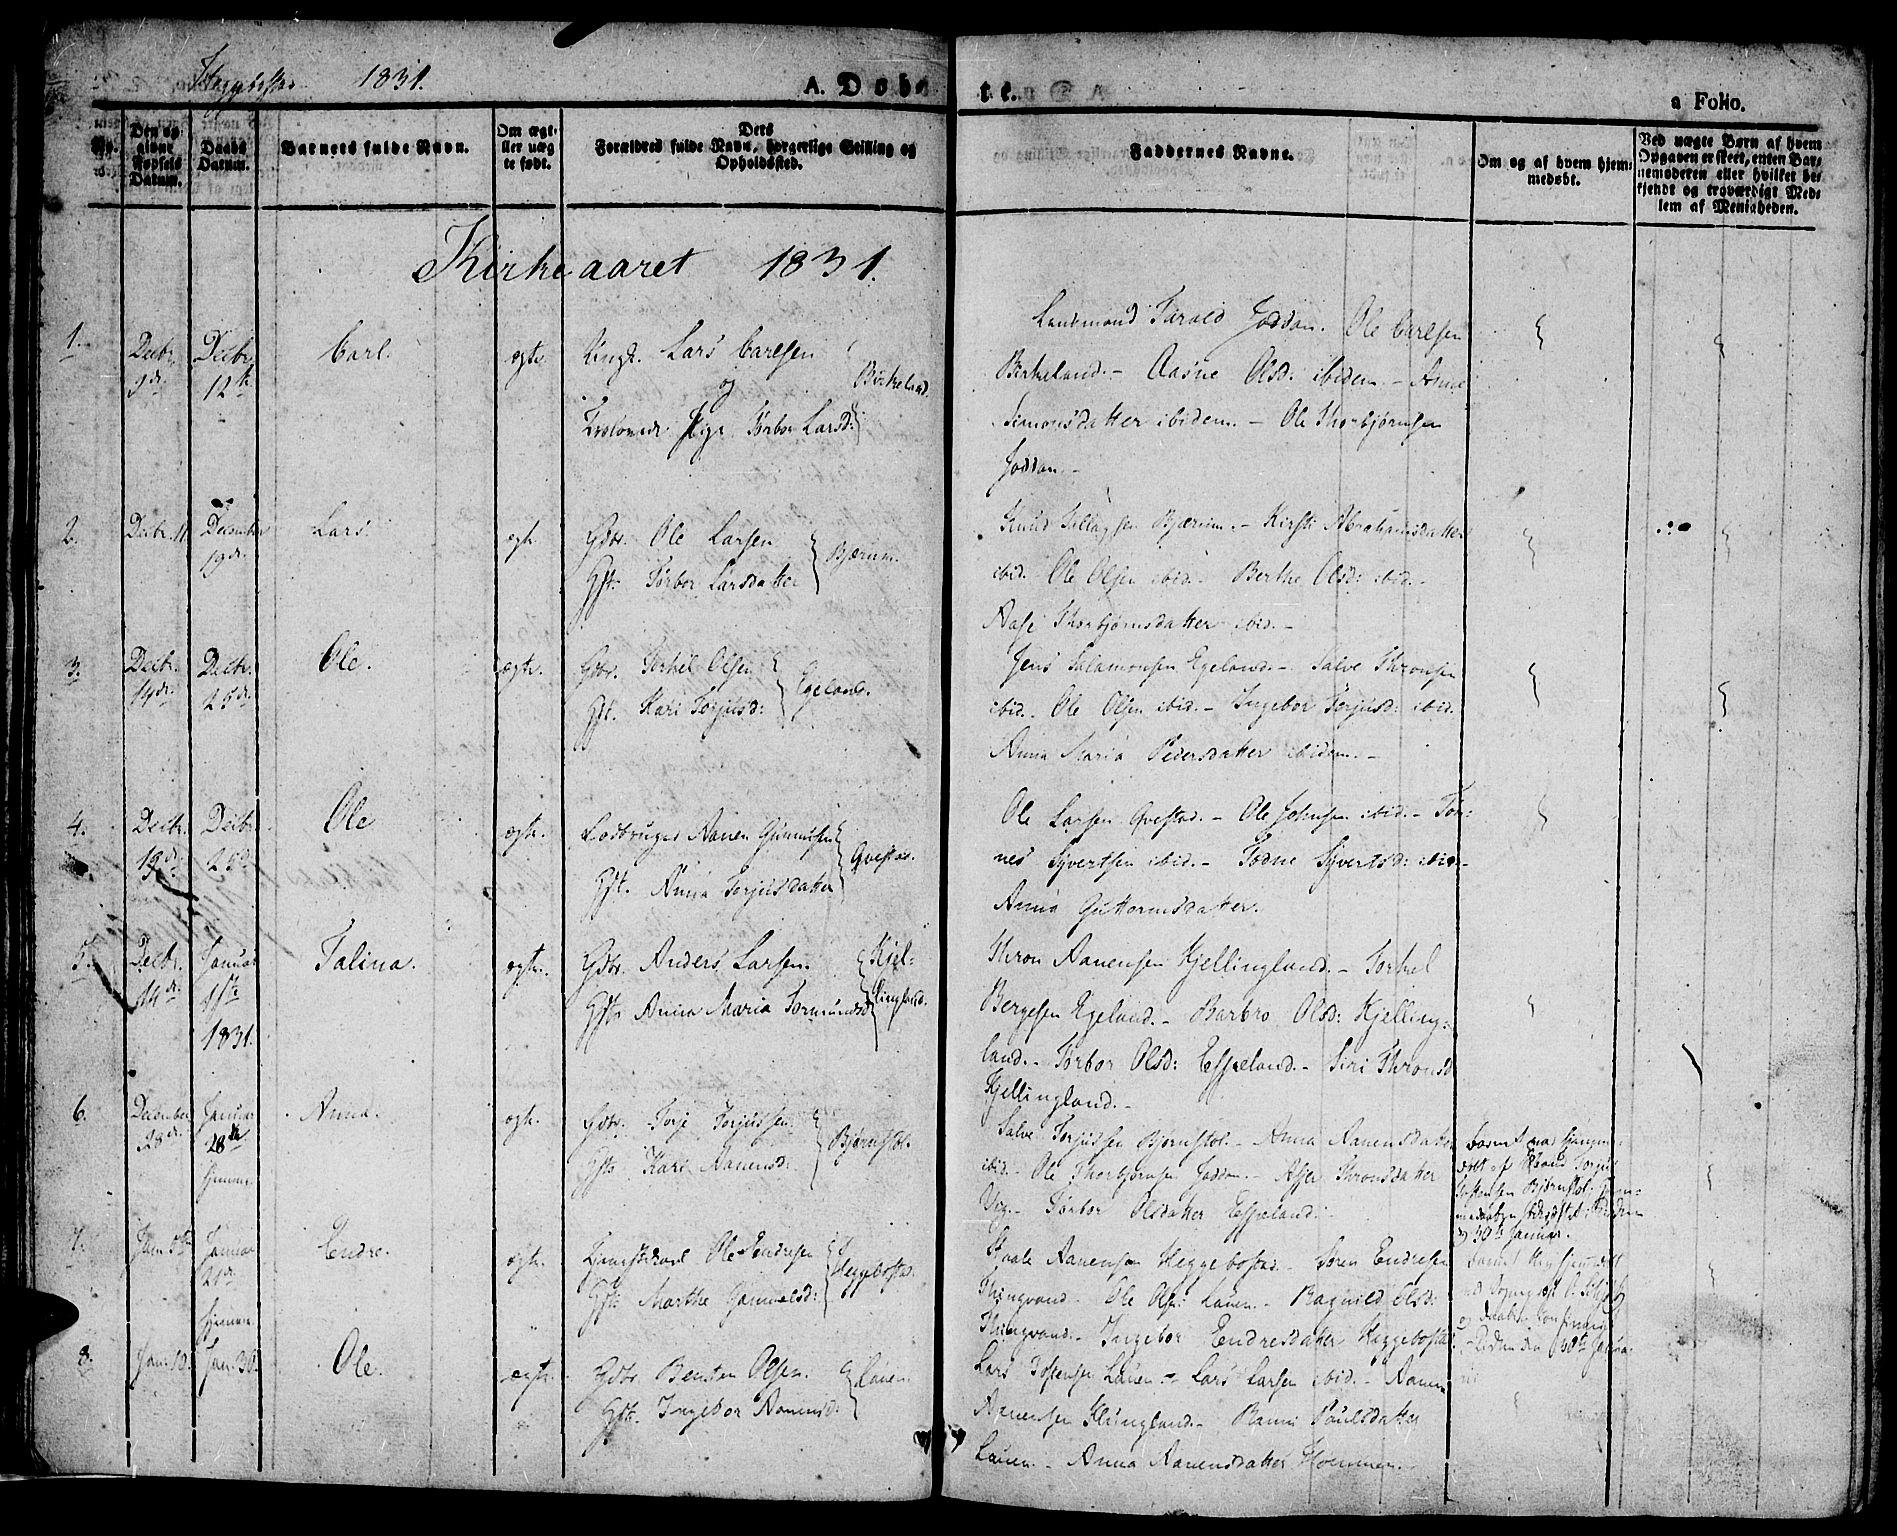 1831.
A. Døbte.
a Folio.
No.
Den opgivne Fødsels Datum.
Daabs Datum.
Barnets fulde Navn.
Om ægte eller uægte født.
Dets Forældres fulde Navn, borgerlige Stilling og Opholdssted.
Faddernes Navne.
Om og af hvem hjemmedøbt.
Ved uægte Børn af hvem Opgaven er skeet, enten Barnemoderen eller hvilket bekjendt og troværdigt Medlem af Menigheden.
Kirkeaaret 1831.
1. Decbr. 9de Decbr. 12te Carl. egte. Ungk. Lars Carlsen
og Birkeland.
Pige Torbor Larsd:
Lensmand Tarald Joddan. Ole Carlsen
Birkeland. - Aasne Olsd: ibidem. - Anne
Simonsdatter ibidem. - Ole Thorbjørnsen
Joddan. -
2. Decbr. 11 December 19de Lars. egte. Gdbr. Ole Larsen
Gft. Torbor Larsdatter Bjærum.
Knud Bjærum. - Kirsti Abrahamsdatter
ibid. Ole Olsen ibid. - Berthe Olsd: ibid. -
Aase Thorbjørnsdatter ibid. -
3. Decbr. 14de Decbr. 25de Ole. egte. Gdbr. Torkel Olsen
Gft. Kari Torjusd: Egeland.
Jens Salamonsen Egeland. - Salve Thronsen
ibid. - Ole Olsen ibid. - Ingebor Torjusd: ibid.
Anna Maria Pedersdatter ibidem. -
4. Decbr. 19de Decbr. 25de Ole egte. Lodbruger Aanen Gunnufsen
Gft. Anna Torjusdatter Qvestad.
Ole Larsen Qvestad. - Ole Johnsen ibid. - Tor-
nes Syvertsen ibid. - Todne Syvertsd: ibid. -
Anna Guttormsdatter.
5. Decbr. 14de Januar 1831. Talina. egte. Gdbr. Anders Larsen.
Gft. Anna Maria Tormundsd Kjel-
lingland.
Thron Aanensen Kjellingland. - Torkel
Bergesen Egeland. - Barbro Olsd: Kjelling-
land. - Torbor Olsd: Espeland. - Siri Thronsd
Kjellingland. -
6. December 28de Januar 28de hjemme Anna. egte. Gdbr. Torje Torjussen
Gft. Kari Aanensd: Bjørnstøl.
Salve Torjussen Bjørnstøl. - Anna Aanensdatter
ibid. - Ole Thorbjørnsen Joddan. - Thronsdatter
Torbor Olsdatter Espeland. -
Barnet var hjemme-
døbt af
Bjørnstøl.
30te Januar.
7. Jan. 5te Januar 21de hjemme Endre. egte. Ole Endresen
Gft. Marthe Gammelsd: Heggebostad.
Aanensen Heggebostad. - Søren Endresen
Thingvand. Ole Olsen Lauen. - Ragnild Olsd:
Thingvand. - Ingebor Endresdatter Heggebostad.
Barnet
den 30te Janua-
8. Jan. 10. Jan. 30. Ole. egte. Gdbr. Benten Olsen.
Gft. Ingebor Aanensd: Lauen.
Lars Tostensen Lauen. - Lars Larsen ibid. - Aanen
Aanensen Klungland. - Paulsdatter
Lauen. - Anna Aanensdatter